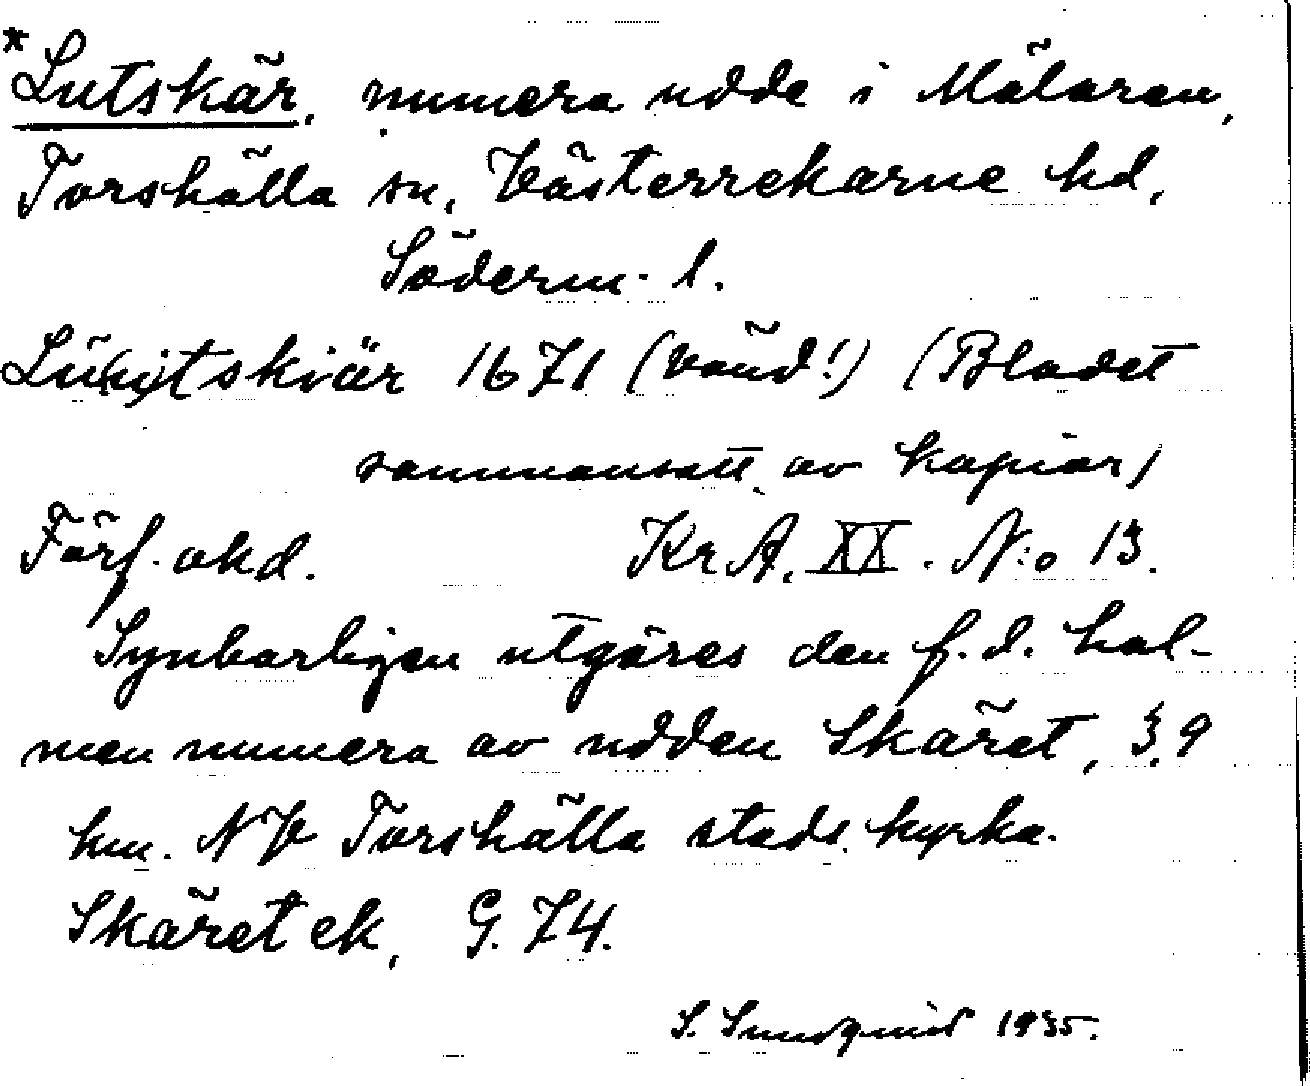 *Lutskär, numera udde i Mälaren,
Torshälla sn, Västerrekarne hd,
Söderm. l.
1671 (vänd!) (Bladet
sammansatt av kopior)
Förf. okd. Kr A. XX. N:o 13.
Synbarligen utgöres den f.d. hol-
men numera av udden Skäret, 3,9
km. NV Torshälla stads kyrka.
Skäret ek, G. 74.
S. Sundquist 1935.